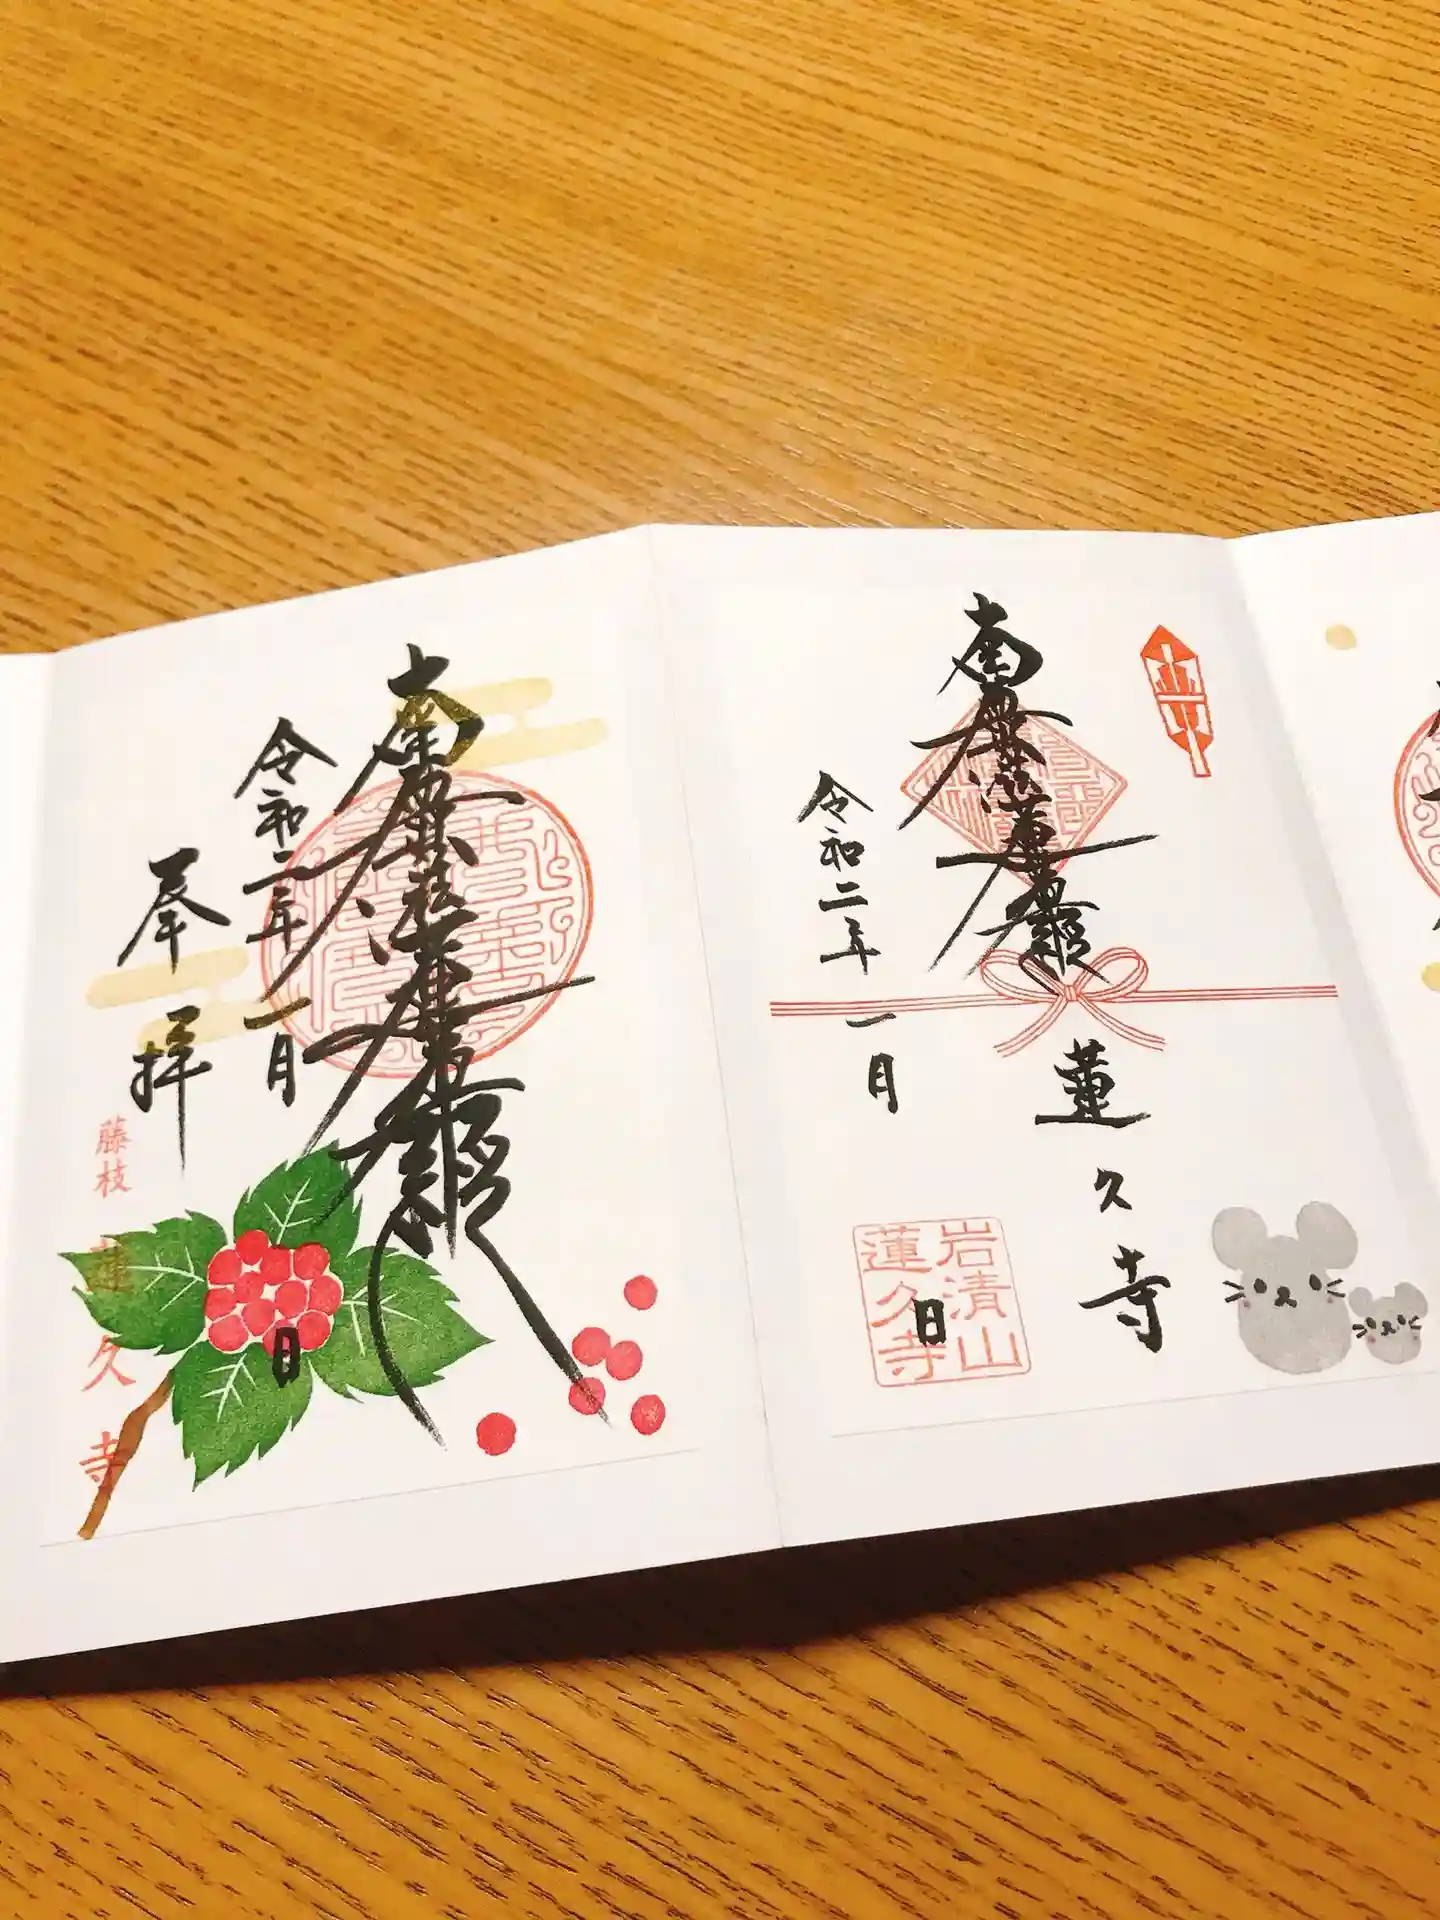 南無妙法蓮華経
蓮久寺
令和二年一月
日
岩清山
蓮久寺
南無妙法蓮華経
令和二年一月
日
奉拝
藤枝
蓮久寺